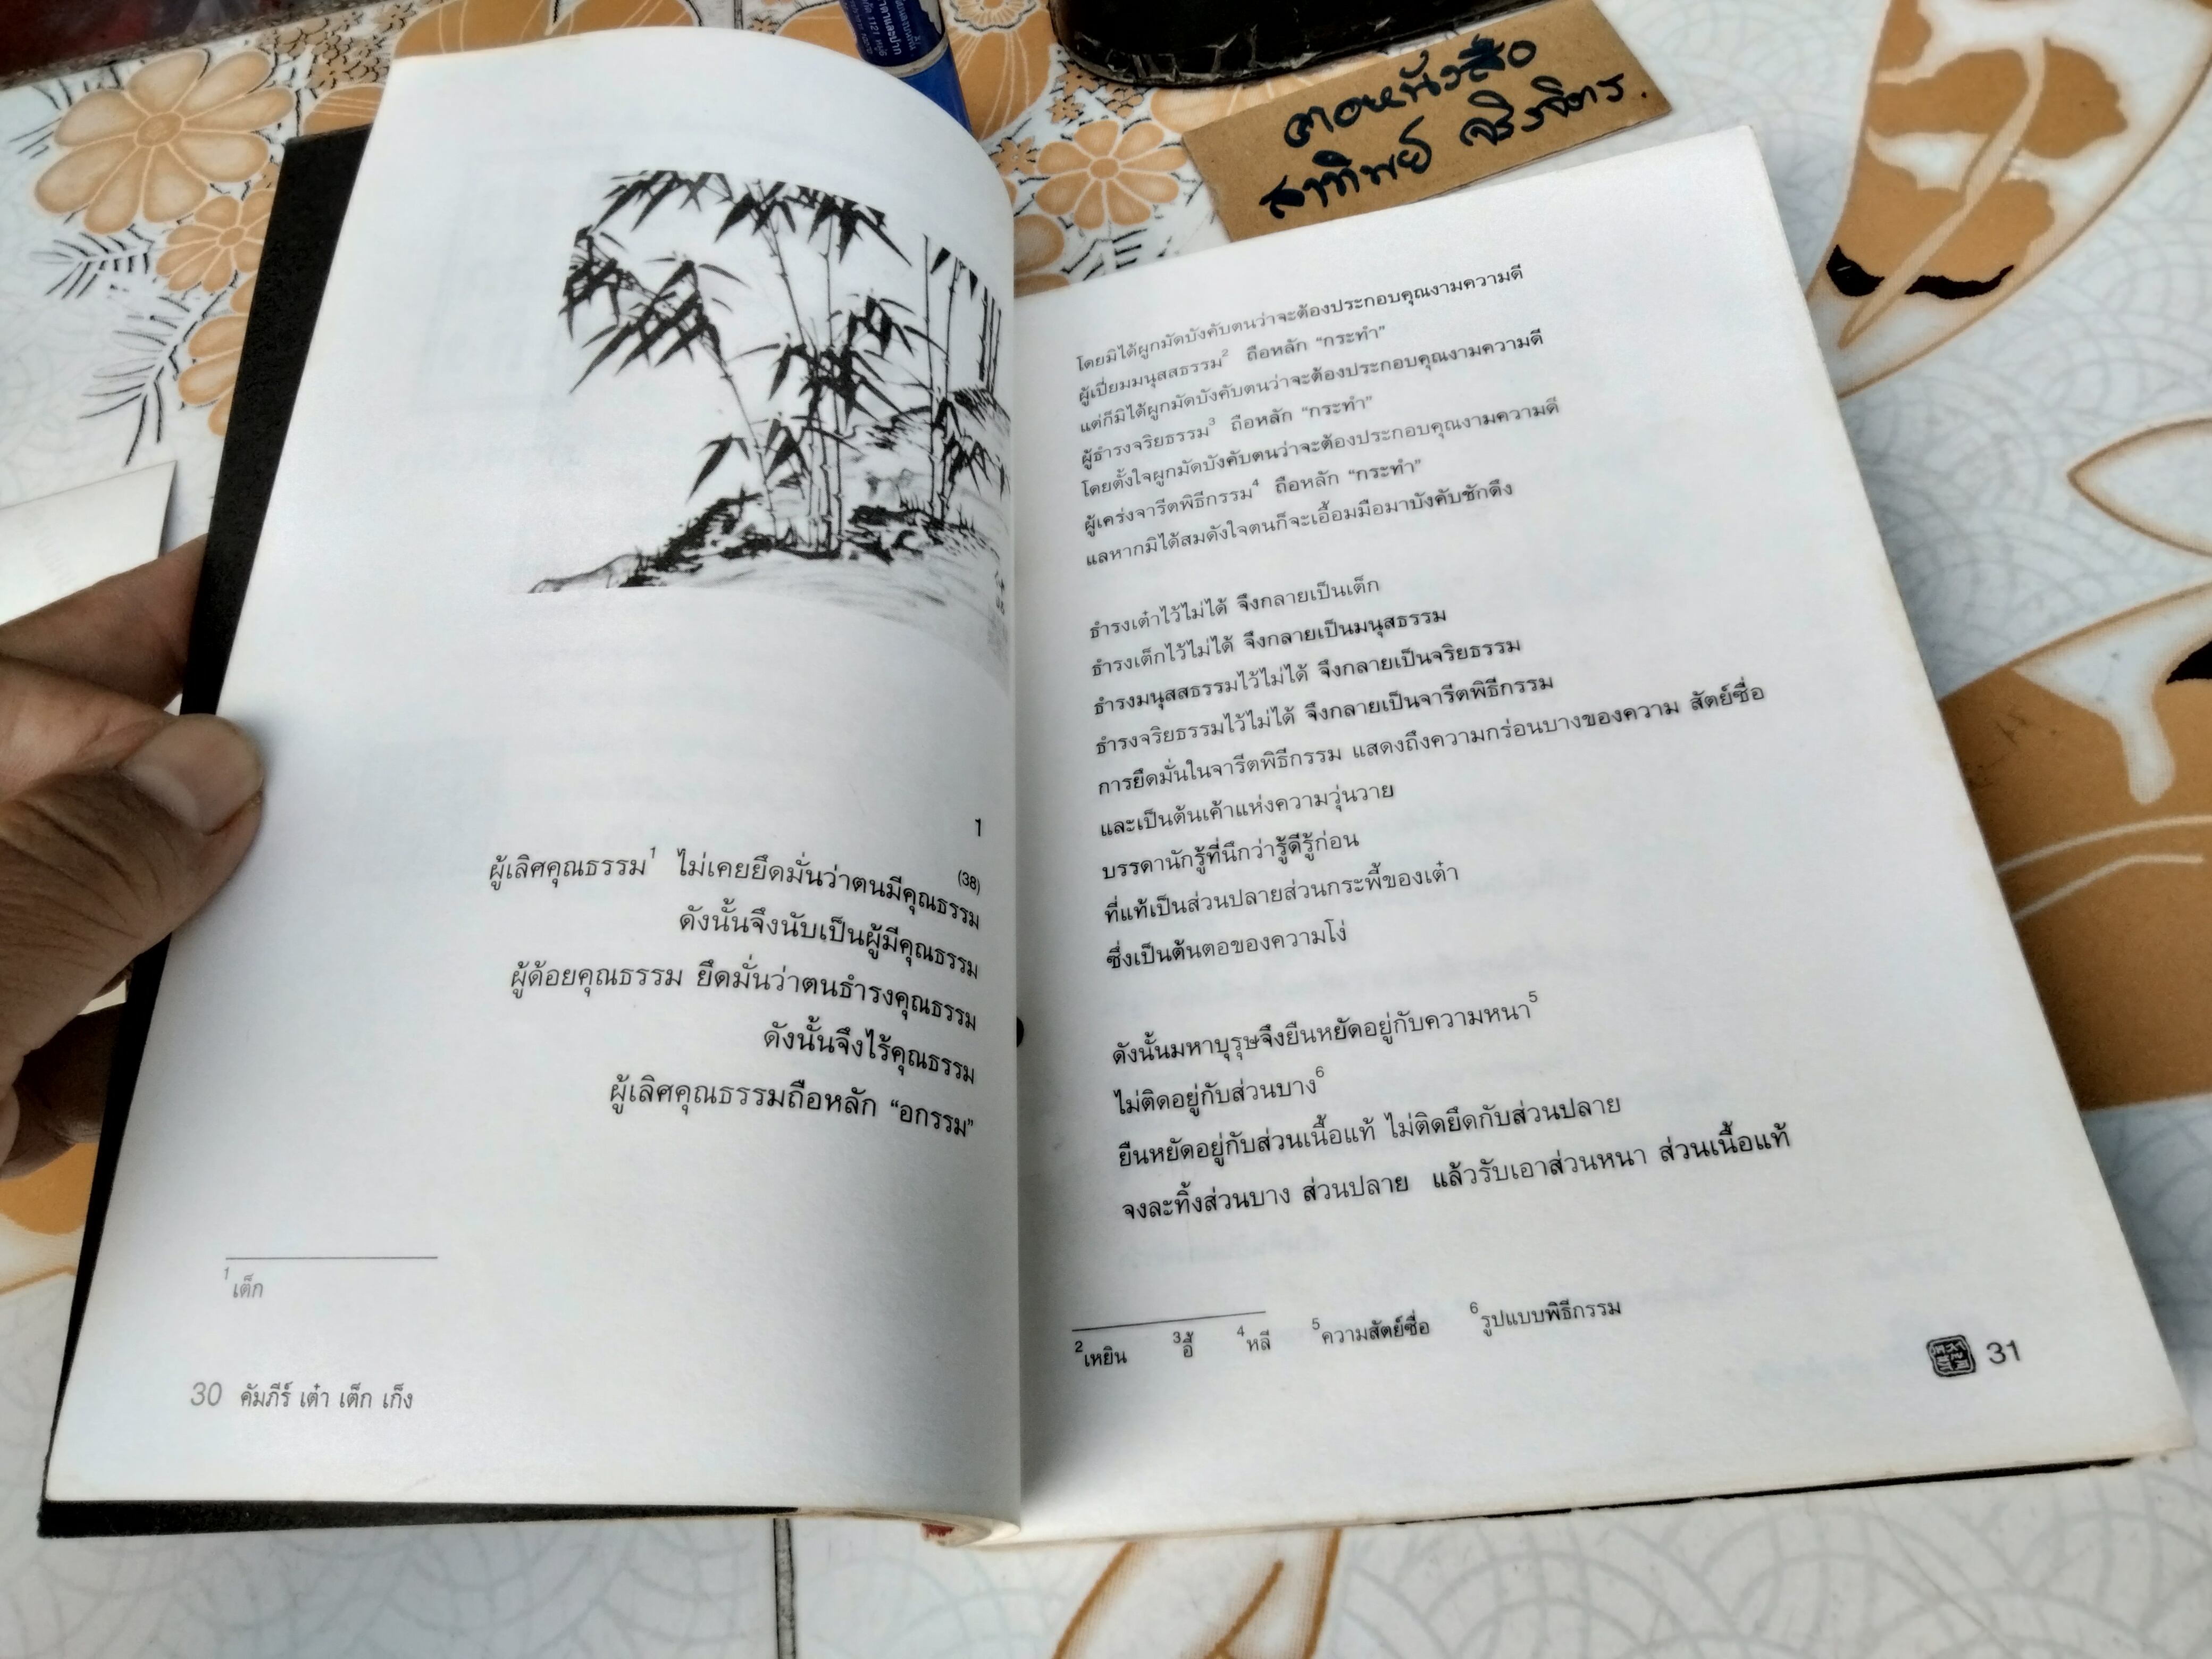 ตอหนังสือ
สาทิพย์
1
(38)
ผู้เลิศคุณธรรม¹ ไม่เคยยึดมั่นว่าตนมีคุณธรรม
ดังนั้นจึงนับเป็นผู้มีคุณธรรม
ผู้ด้อยคุณธรรม ยึดมั่นว่าตนธำรงคุณธรรม
ดังนั้นจึงไร้คุณธรรม
ผู้เลิศคุณธรรมถือหลัก “อกรรม”
¹เต็ก
30 คัมภีร์ เต๋า เต็ก เก็ง
โดยมิได้ผูกมัดบังคับตนว่าจะต้องประกอบคุณงามความดี
ผู้เปี่ยมมนุสสธรรม² ถือหลัก “กระทำ”
แต่ก็มิได้ผูกมัดบังคับตนว่าจะต้องประกอบคุณงามความดี
ผู้ธำรงจริยธรรม³ ถือหลัก “กระทำ”
โดยตั้งใจผูกมัดบังคับตนว่าจะต้องประกอบคุณงามความดี
ผู้เคร่งจารีตพิธีกรรม⁴ ถือหลัก “กระทำ”
แลหากมิได้สมดังใจตนก็จะเอื้อมมือมาบังคับชักดึง
ธำรงเต๋าไว้ไม่ได้ จึงกลายเป็นเต็ก
ธำรงเต็กไว้ไม่ได้ จึงกลายเป็นมนุสธรรม
ธำรงมนุสสธรรมไว้ไม่ได้ จึงกลายเป็นจริยธรรม
ธำรงจริยธรรมไว้ไม่ได้ จึงกลายเป็นจารีตพิธีกรรม
การยึดมั่นในจารีตพิธีกรรม แสดงถึงความกร่อนบางของความ สัตย์ซื่อ
และเป็นต้นเค้าแห่งความวุ่นวาย
บรรดานักรู้ที่นึกว่ารู้ดีรู้ก่อน
ที่แท้เป็นส่วนปลายส่วนกระพี้ของเต๋า
ซึ่งเป็นต้นตอของความโง่
ดังนั้นมหาบุรุษจึงยืนหยัดอยู่กับความหนา⁵
ไม่ติดอยู่กับส่วนบาง⁶
ยืนหยัดอยู่กับส่วนเนื้อแท้ ไม่ติดยึดกับส่วนปลาย
จงละทิ้งส่วนบาง ส่วนปลาย แล้วรับเอาส่วนหนา ส่วนเนื้อแท้
²เหยิน ³อี้ ⁴หลี ⁵ความสัตย์ซื่อ ⁶รูปแบบพิธีกรรม
31